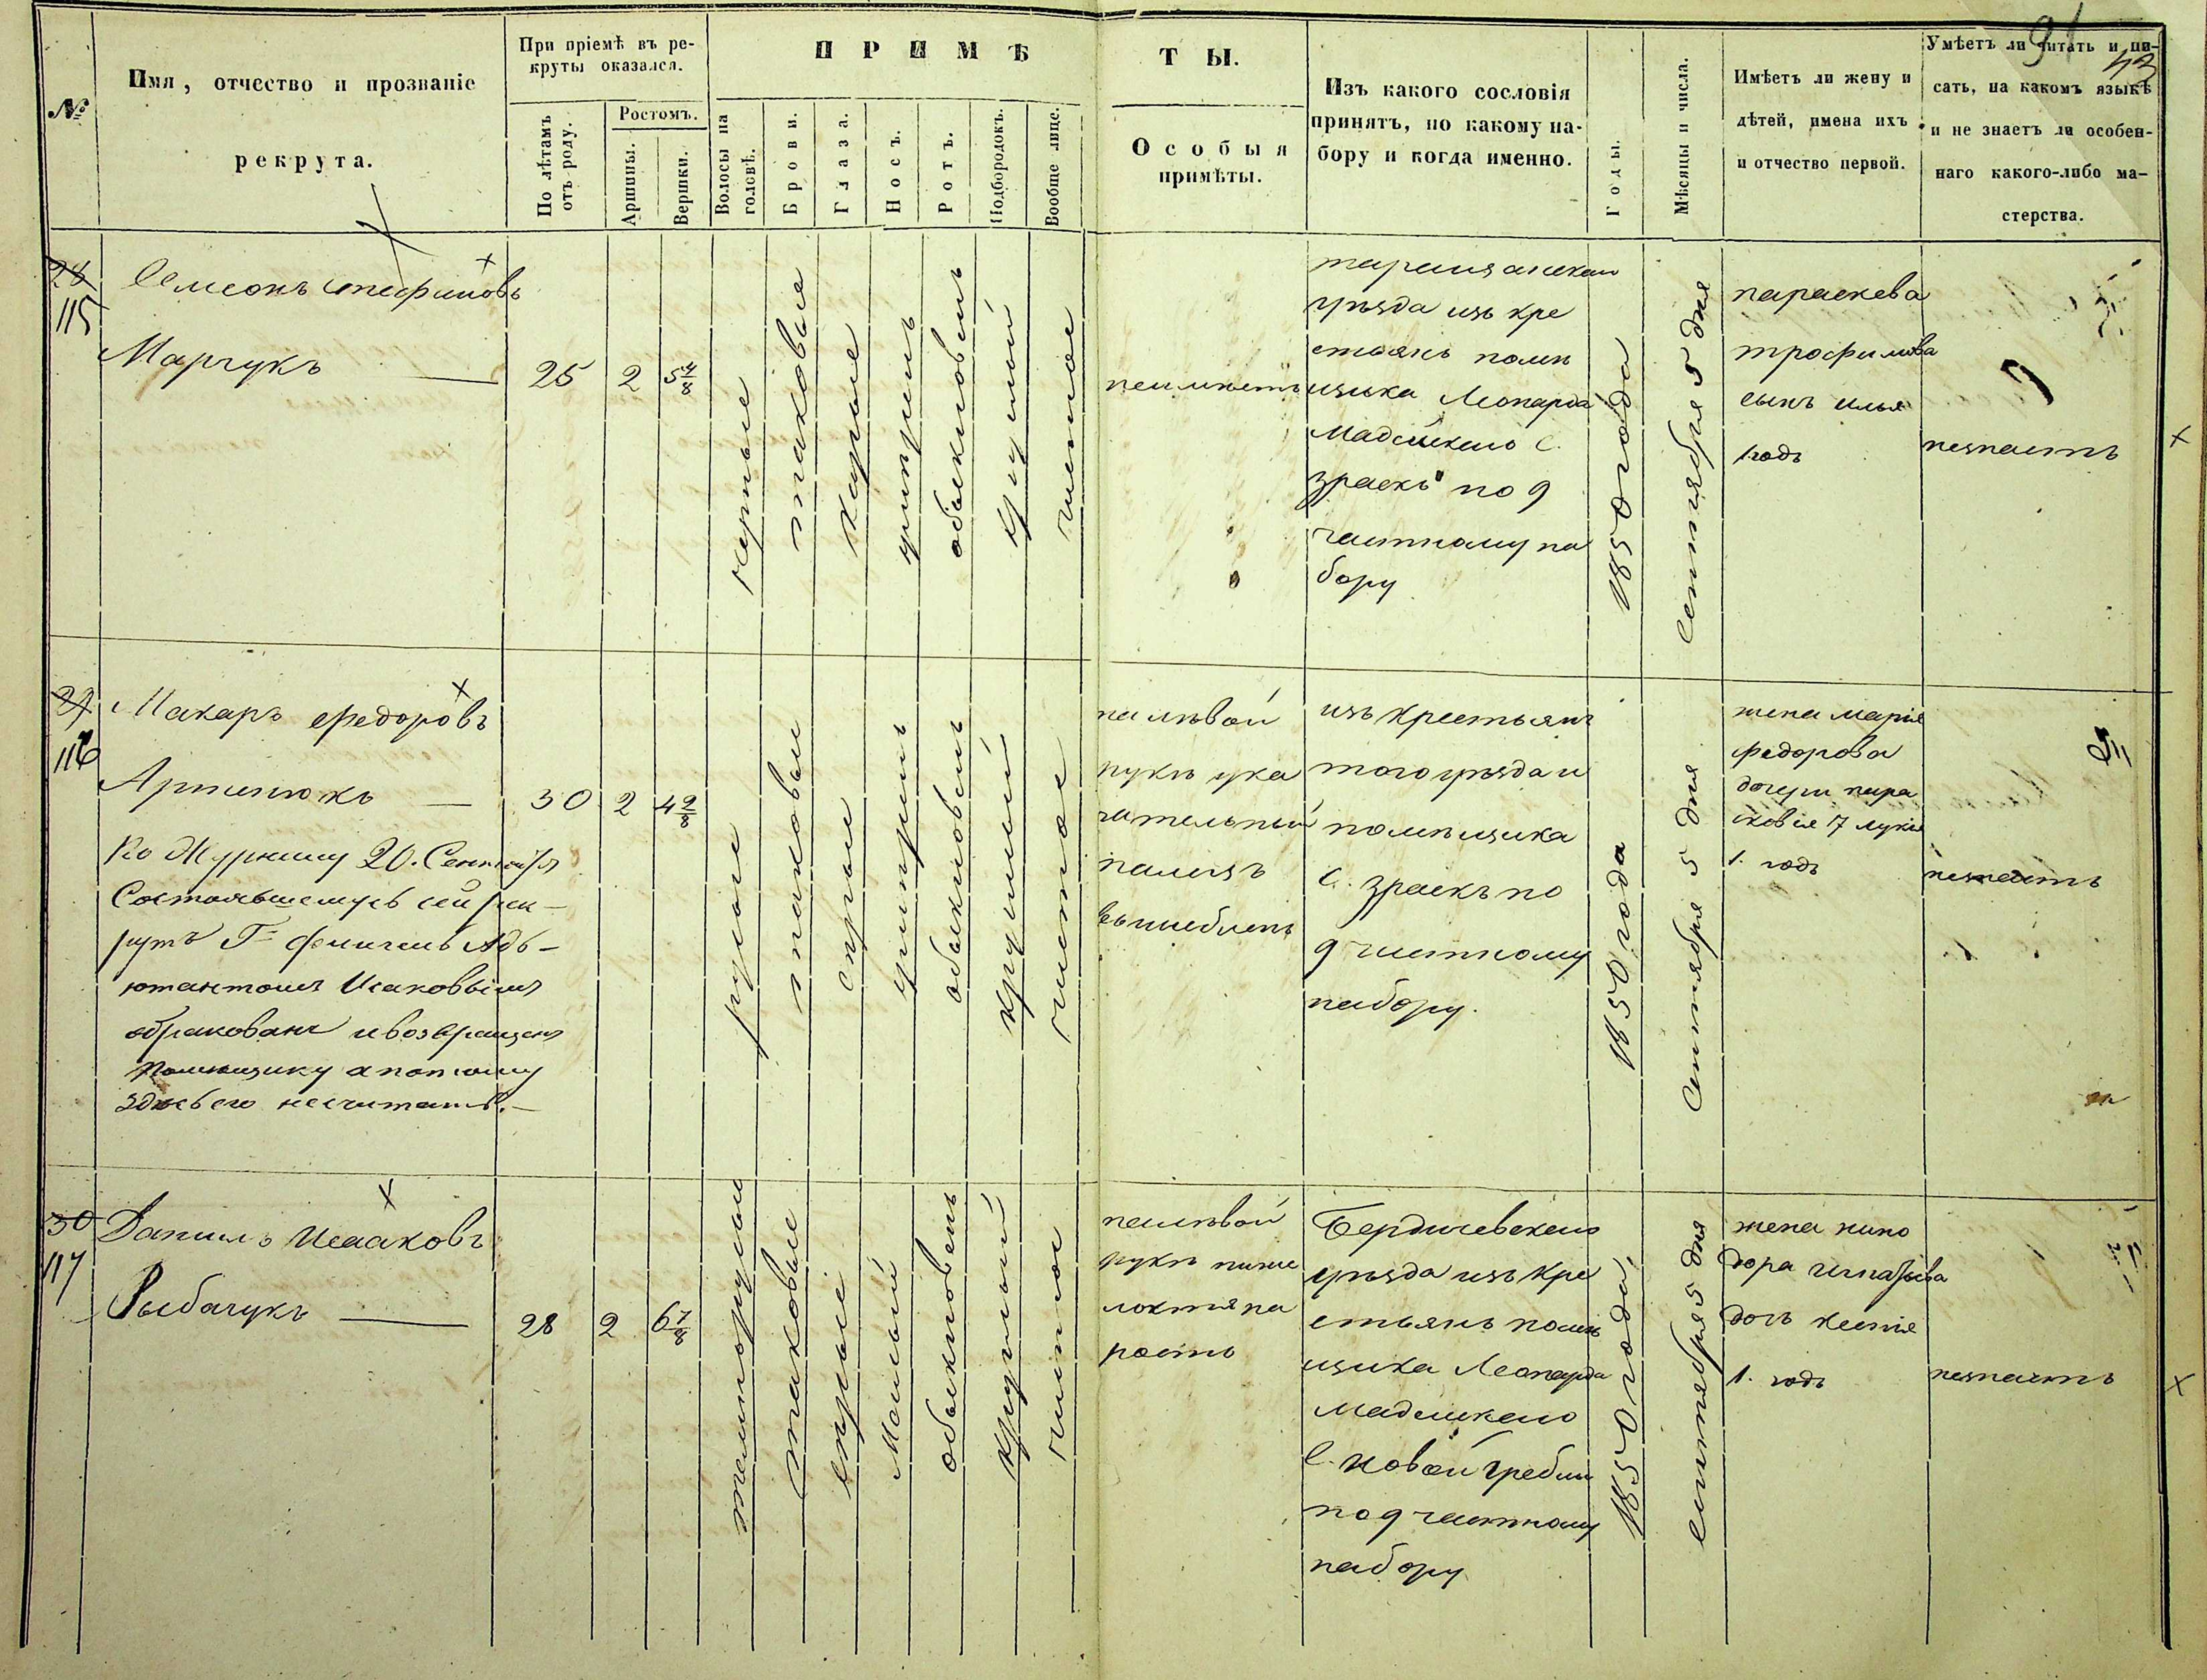 91
43
№
Имя, отчество и прозваніе
рекрута.
При пріемѣ въ ре-
круты оказался.
По лѣтамъ
отъ роду.
Ростомъ.
Аршины.
Вершки.
ПРИМѢ
ТЫ.
Волосы на
головѣ.
Брови.
Глаза.
Носъ.
Ротъ.
Подбородокъ.
Вообще лице.
Особыя
примѣты.
Изъ какого сословія
принятъ, по какому на-
бору и когда именно.
Годы.
Мѣсяцы и числа.
Имѣетъ ли жену и
дѣтей, имена ихъ
и отчество первой.
Умѣетъ ли читать и пи-
сать, на какомъ языкѣ
и не знаетъ ли особен-
наго какого-либо ма-
стерства.
28
115
Семенъ
Марчукъ
25
2
5 4/8
черные
таковые
карые
обыкновень
круглый
чистое
неимѣетъ
уѣзда изъ кре
стьянъ помѣ
щика Леопарда
С.
по 9
частному на
бору
1850 года
Сентября 5 дня
параскева
трофимова
сынъ илья
1 годъ
незнаетъ
29
116
Макаръ Федоровъ
30
2
4
По Журналу 20. Сентября
Состоявшемусь сей рек-
рутъ Г= Адъ-
ютантомъ Исаковымъ
обракованъ и возвращенъ
помѣщику а потому
здесь его несчитать.-
русые
таковые
серые
обыкновень
круглый
чистое
на лѣвой
рукѣ ука
зательный
палецъ
изъ крестьянъ
того уѣзда и
помѣщика
С. по
9 частному
набору.
1850 года
Сентября 5 дня
жена марія
федорова
дочери пара
сковія 7 лукія
1. годъ
незнаетъ
30
117
Данило Исааковъ
Рыбачукъ
28
2
6 7/8
темнорусые
таковые
серые
Малый
обыкновень
круглый
чистое
на лѣвой
рукѣ ниже
локтя на
ростъ
Бердичевскаго
уѣзда изъ кре
стьянъ помѣ
щика Леопарда
С. Новой Гребли
по 9 частному
набору
1850 года
сентября 5 дня
жена нимо
дора игнатьева
дочь ксенія
1. годъ
незнаетъ